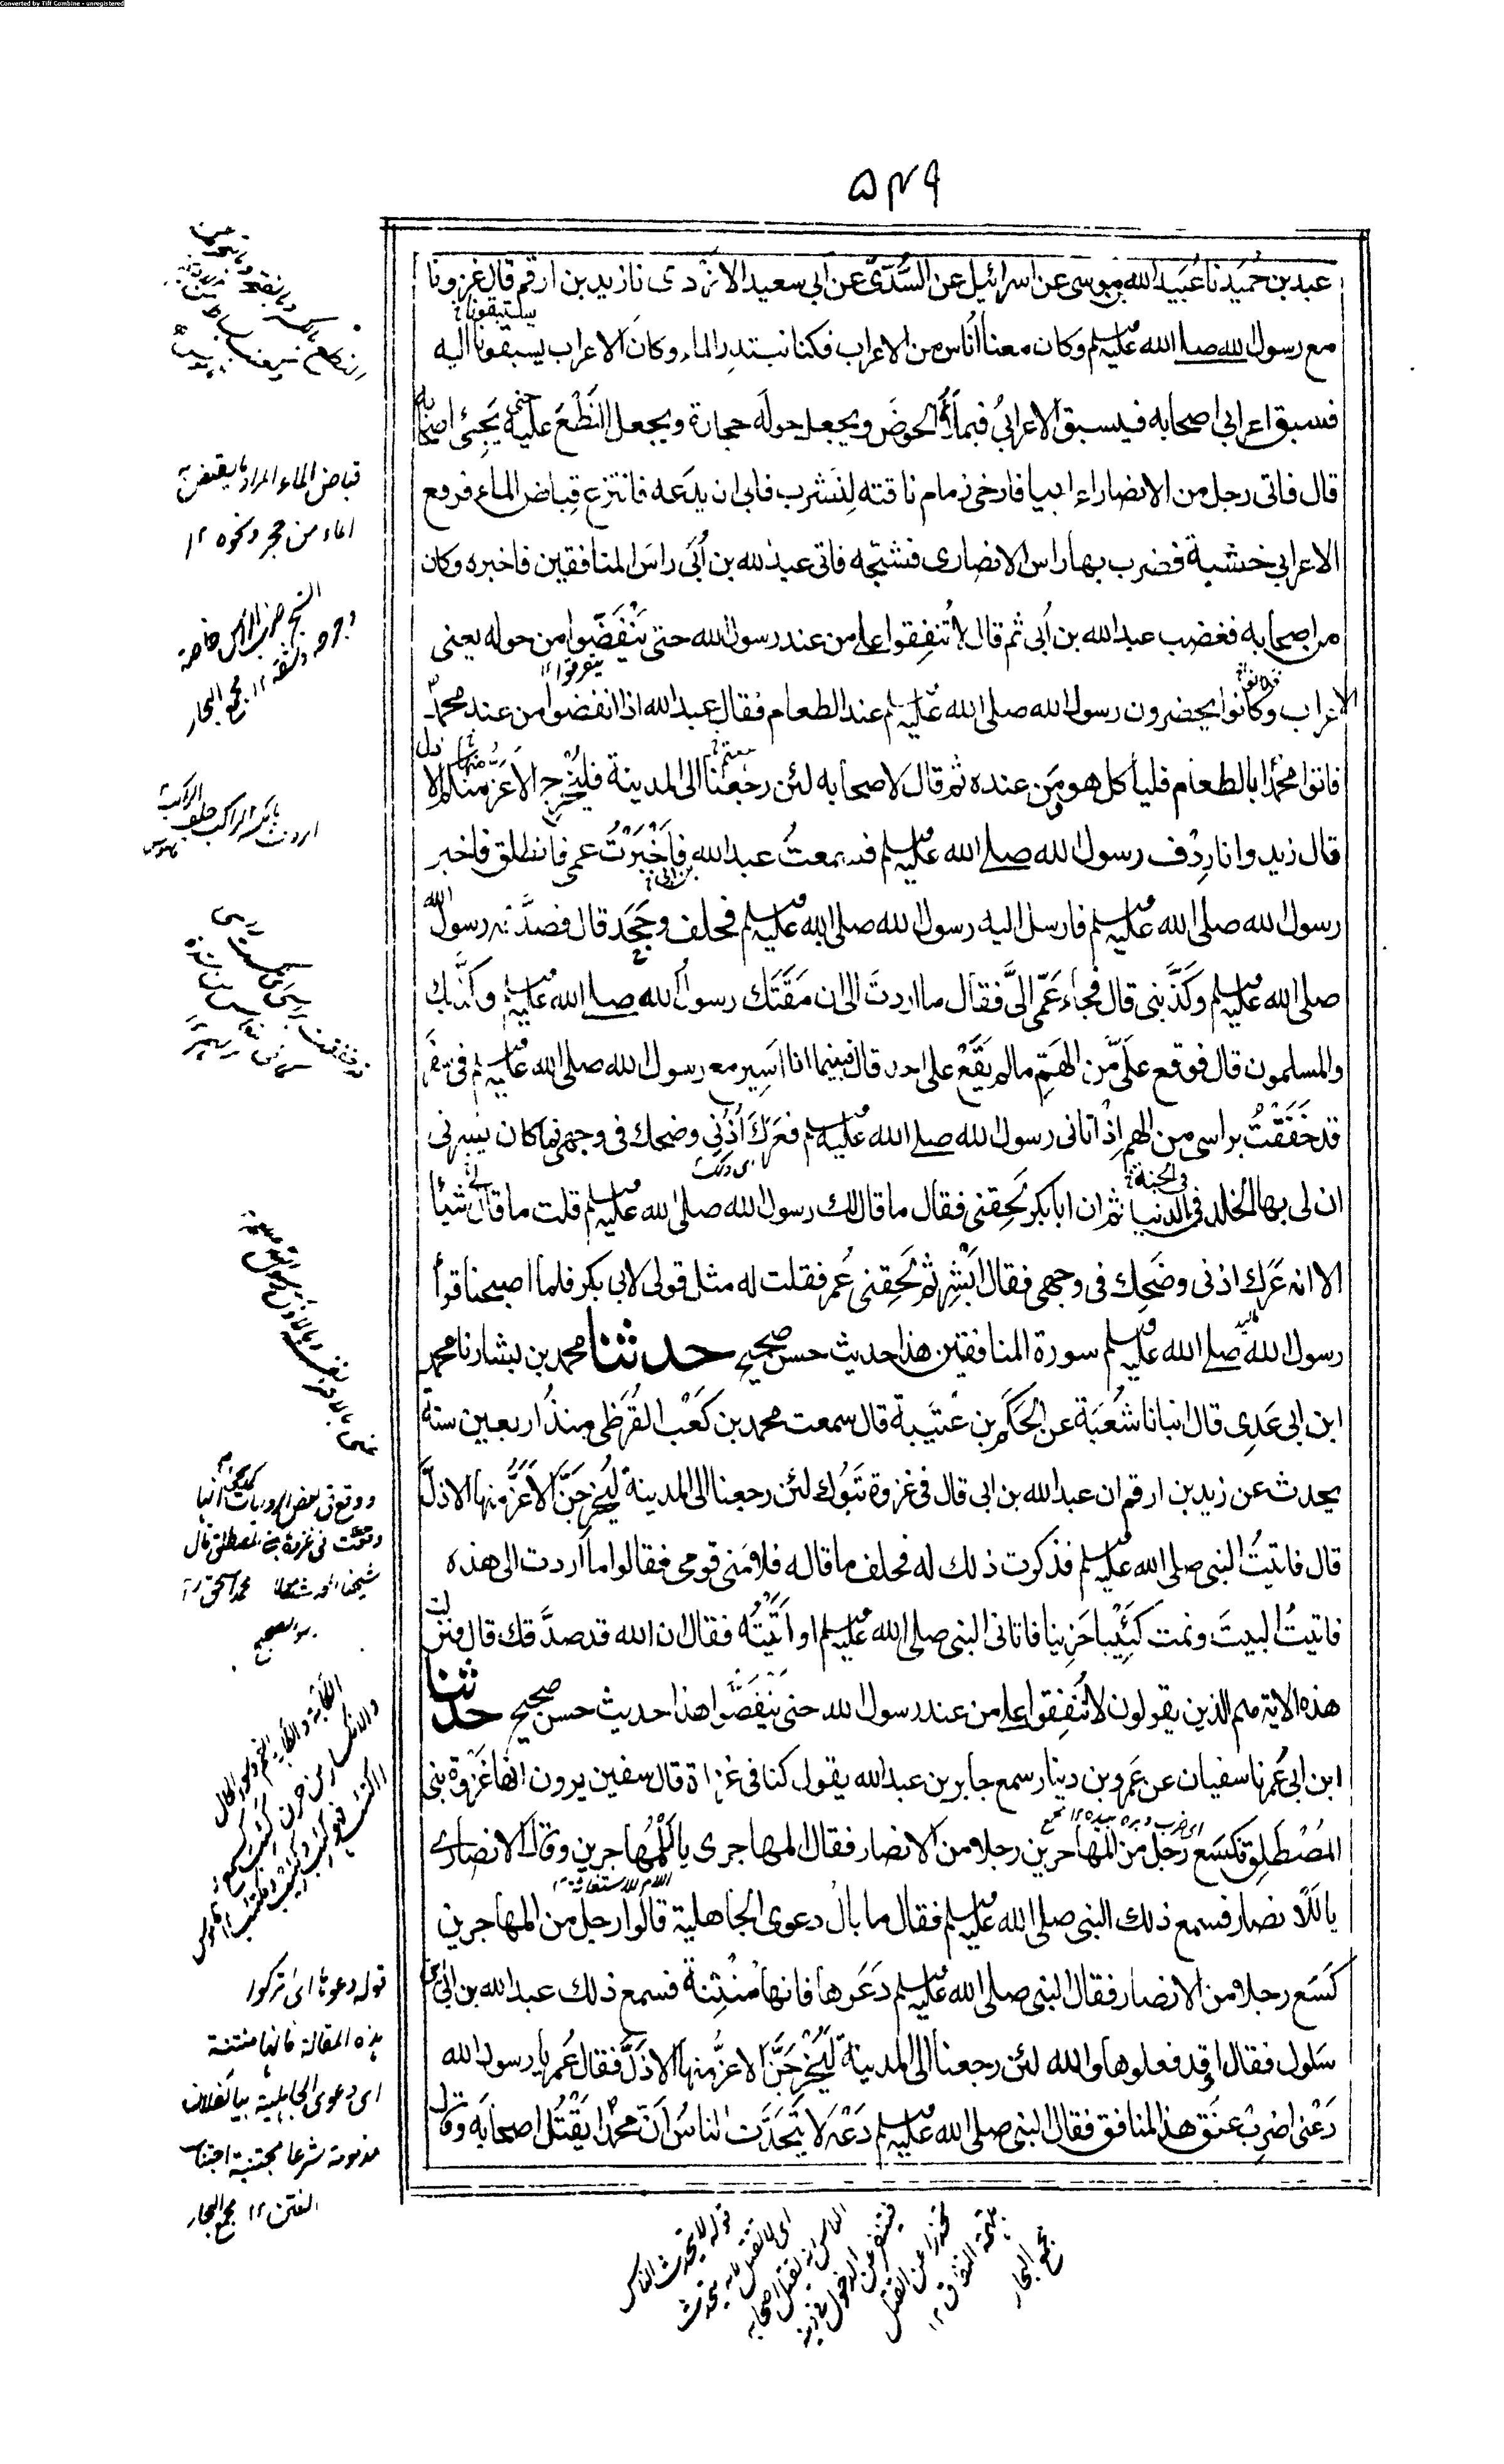 Converted by Tiff Combine - unregistered
۵۴۹
عبد بن حُمَيد نا عُبَيد الله بن موسى عن اسرائيل عن السُّدّىّ عن ابى سعيد الازدى نا زيد بن ارقم قال غزونا
مع رسول الله صلى الله عليه وسلم وكان معنا اُناس من الاعراب فكنا نبتدر الماء وكان الاعراب يسبقونا اليه
فسبق اعرابى اصحابه فيسبق الاعرابىُّ فيملأ الحوضَ ويجعل حوله حجارة ويجعل النَّطْعَ عليه حتى يَجِئَ اصحابه
قال فاتى رجل من الانصار اعرابيا فارخى زمام ناقته لِتَشرب فابى ان يدَعه فانتزع قِباض الماء فرفع
الاعرابى خشبة فضرب بها راس الانصارى فشجّه فاتى عبد الله بن اُبَى راسَ المنافقين فاخبره وكان
من اصحابه فغضب عبد الله بن اُبى ثم قال لا تُنفِقوا على من عند رسول الله حتى يَنْفَضّوا من حوله يعنى
الاعراب وكانوا يحضرون رسول الله صلى الله عليه وسلم عند الطعام فقال عبد الله اذا انفضوا من عند محمد
فاتوا محمدًا بالطعام فليأكل هو ومَن عنده ثم قال لاصحابه لئن رجعنا الى المدينة فليُخْرِج الاَعَزّ منكم الاذل
قال زيد وانا رِدْف رسول الله صلى الله عليه وسلم فسمعتُ عبد الله فاَخْبَرْتُ عمى فانطلق فاخبر
رسول الله صلى الله عليه وسلم فارسل اليه رسول الله صلى الله عليه وسلم فحلف وجَحَد قال فصدَّقه رسول الله
صلى الله عليه وسلم وكَذَّبنى قال فجاء عَمّى اِلَىَّ فقال ما اردتَ الى ان مَقَتَك رسول الله صلى الله عليه وسلم وكذَّبك
والمسلمون قال فوقع عَلَىَّ من الهَمّ ما لم يَقَعْ على احد قال فبينما انا اَسِير مع رسول الله صلى الله عليه وسلم فى سَفَر
قد خَفَقْتُ براسى من الهم اِذْ اتانى رسول الله صلى الله عليه وسلم فعَرَكَ اُذُنى وضحك فى وجهى فما كان يَسُرّنى
ان لى بها الخلد فى الدنيا ثم ان ابا بكر لَحِقنى فقال ما قال لك رسول الله صلى الله عليه وسلم قلت ما قال لى شيئا
الا انه عَرَك اذنى وضَحِك فى وجهى فقال اَبْشِر ثم لَحِقنى عُمر فقلت له مثل قولى لابى بكر فلما اصبحنا قرأ
رسول الله صلى الله عليه وسلم سورة المنافقين هذا حديث حسن صحيح حدثنا محمد بن بشار نا محمد
ابن ابى عَدِى قال انبانا شُعْبَة عن الحَكَم بن عُتَيبة قال سمعت محمد بن كَعْب القُرَظى منذ اربعين سنة
يحدث عن زيد بن ارقم ان عبد الله بن ابى قال فى غزوة تَبُوك لئن رجعنا الى المدينة لَيُخْرِجَنَّ الاَعَزُّ منها الاذلَّ
قال فاتيتُ النبى صلى الله عليه وسلم فذكرت ذلك له فحلف ما قاله فلامَنى قومى فقالوا ما اَردت الى هذه
فاتيتُ البيتَ ونمت كَئِيْبا حَزِينا فاتانى النبى صلى الله عليه وسلم او اَتَيْتُه فقال ان الله قد صدَّقك قال فنزلت
هذه الاية هم الذين يقولون لا تُنْفِقوا على من عند رسول الله حتى يَنْفَضُّوا هذا حديث حسن صحيح حدثنا
ابن ابى عُمر نا سفيان عن عَمرو بن دينار سمع جابر بن عبد الله يقول كنا فى غزاة قال سفين يرون انها غَزْوة بنى
المُصْطَلِق فكَسَع رجل من المهاجرين رجلا من الانصار فقال المهاجرى يا لَلْمُهاجرين وقال الانصارى
يا لَلاَنصار فسمع ذلك النبى صلى الله عليه وسلم فقال ما بالُ دعوى الجاهلية قالوا رجل من المهاجرين
كَسَع رجلا من الانصار فقال النبى صلى الله عليه وسلم دَعُوها فانها مُنْتِنة فسمع ذلك عبد الله بن ابى بن
سَلول فقال اوقد فعلوها والله لئن رجعنا الى المدينة لَيُخْرِجَنَّ الاعزُّ منها الاذَلَّ فقال عُمر يا رسول الله
دَعْنى اضرِبْ عنق هذا المنافق فقال النبى صلى الله عليه وسلم دَعْه لا يَتَحَدَّث الناسُ اَنّ محمدًا يَقْتُل اصحابَه وقال
قباض الماء المراد ما يقبض به
الماء من حجر ونحوه ١٢
الشج ضرب الراس خاصة
وجرحه وشقه ١٢ مجمع البحار
ووقع فى بعض الروايات انها
وقعت فى غزوة بنى المصطلق قال
قوله دعوها اى اتركوا
هذه المقالة فانها منتنة
اى دعوى الجاهلية بيا لفلان
مذمومة شرعا مجتنبة اجتناب
النتن ١٢ مجمع البحار
قوله لا يتحدث الناس
مجمع البحار